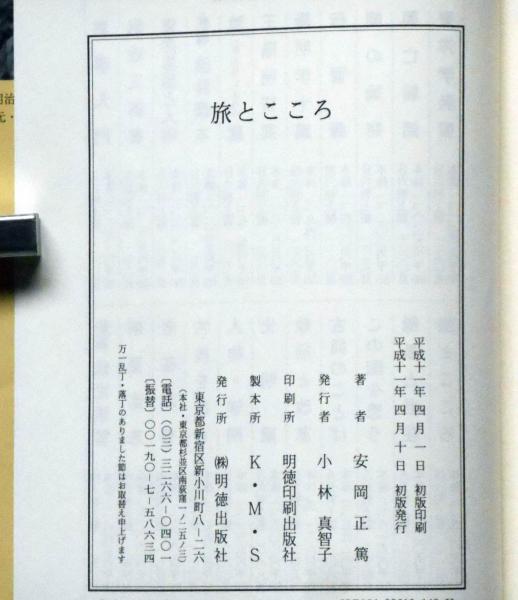 旅とこころ
平成十一年四月一日 初版印刷
平成十一年四月十日 初版発行
著者 安岡正篤
発行者 小林真智子
印刷所 明徳印刷出版社
製本所 K・M・S
発行所 ㈱明徳出版社
東京都新宿区新小川町八―二六
(本社・東京都杉並区南荻窪一ノ二五ノ三)
〔電話〕(〇三)三二六六―〇四〇一
〔振替〕〇〇一九〇―七―五八六三四
万一乱丁・落丁のありました節はお取替え申上げます